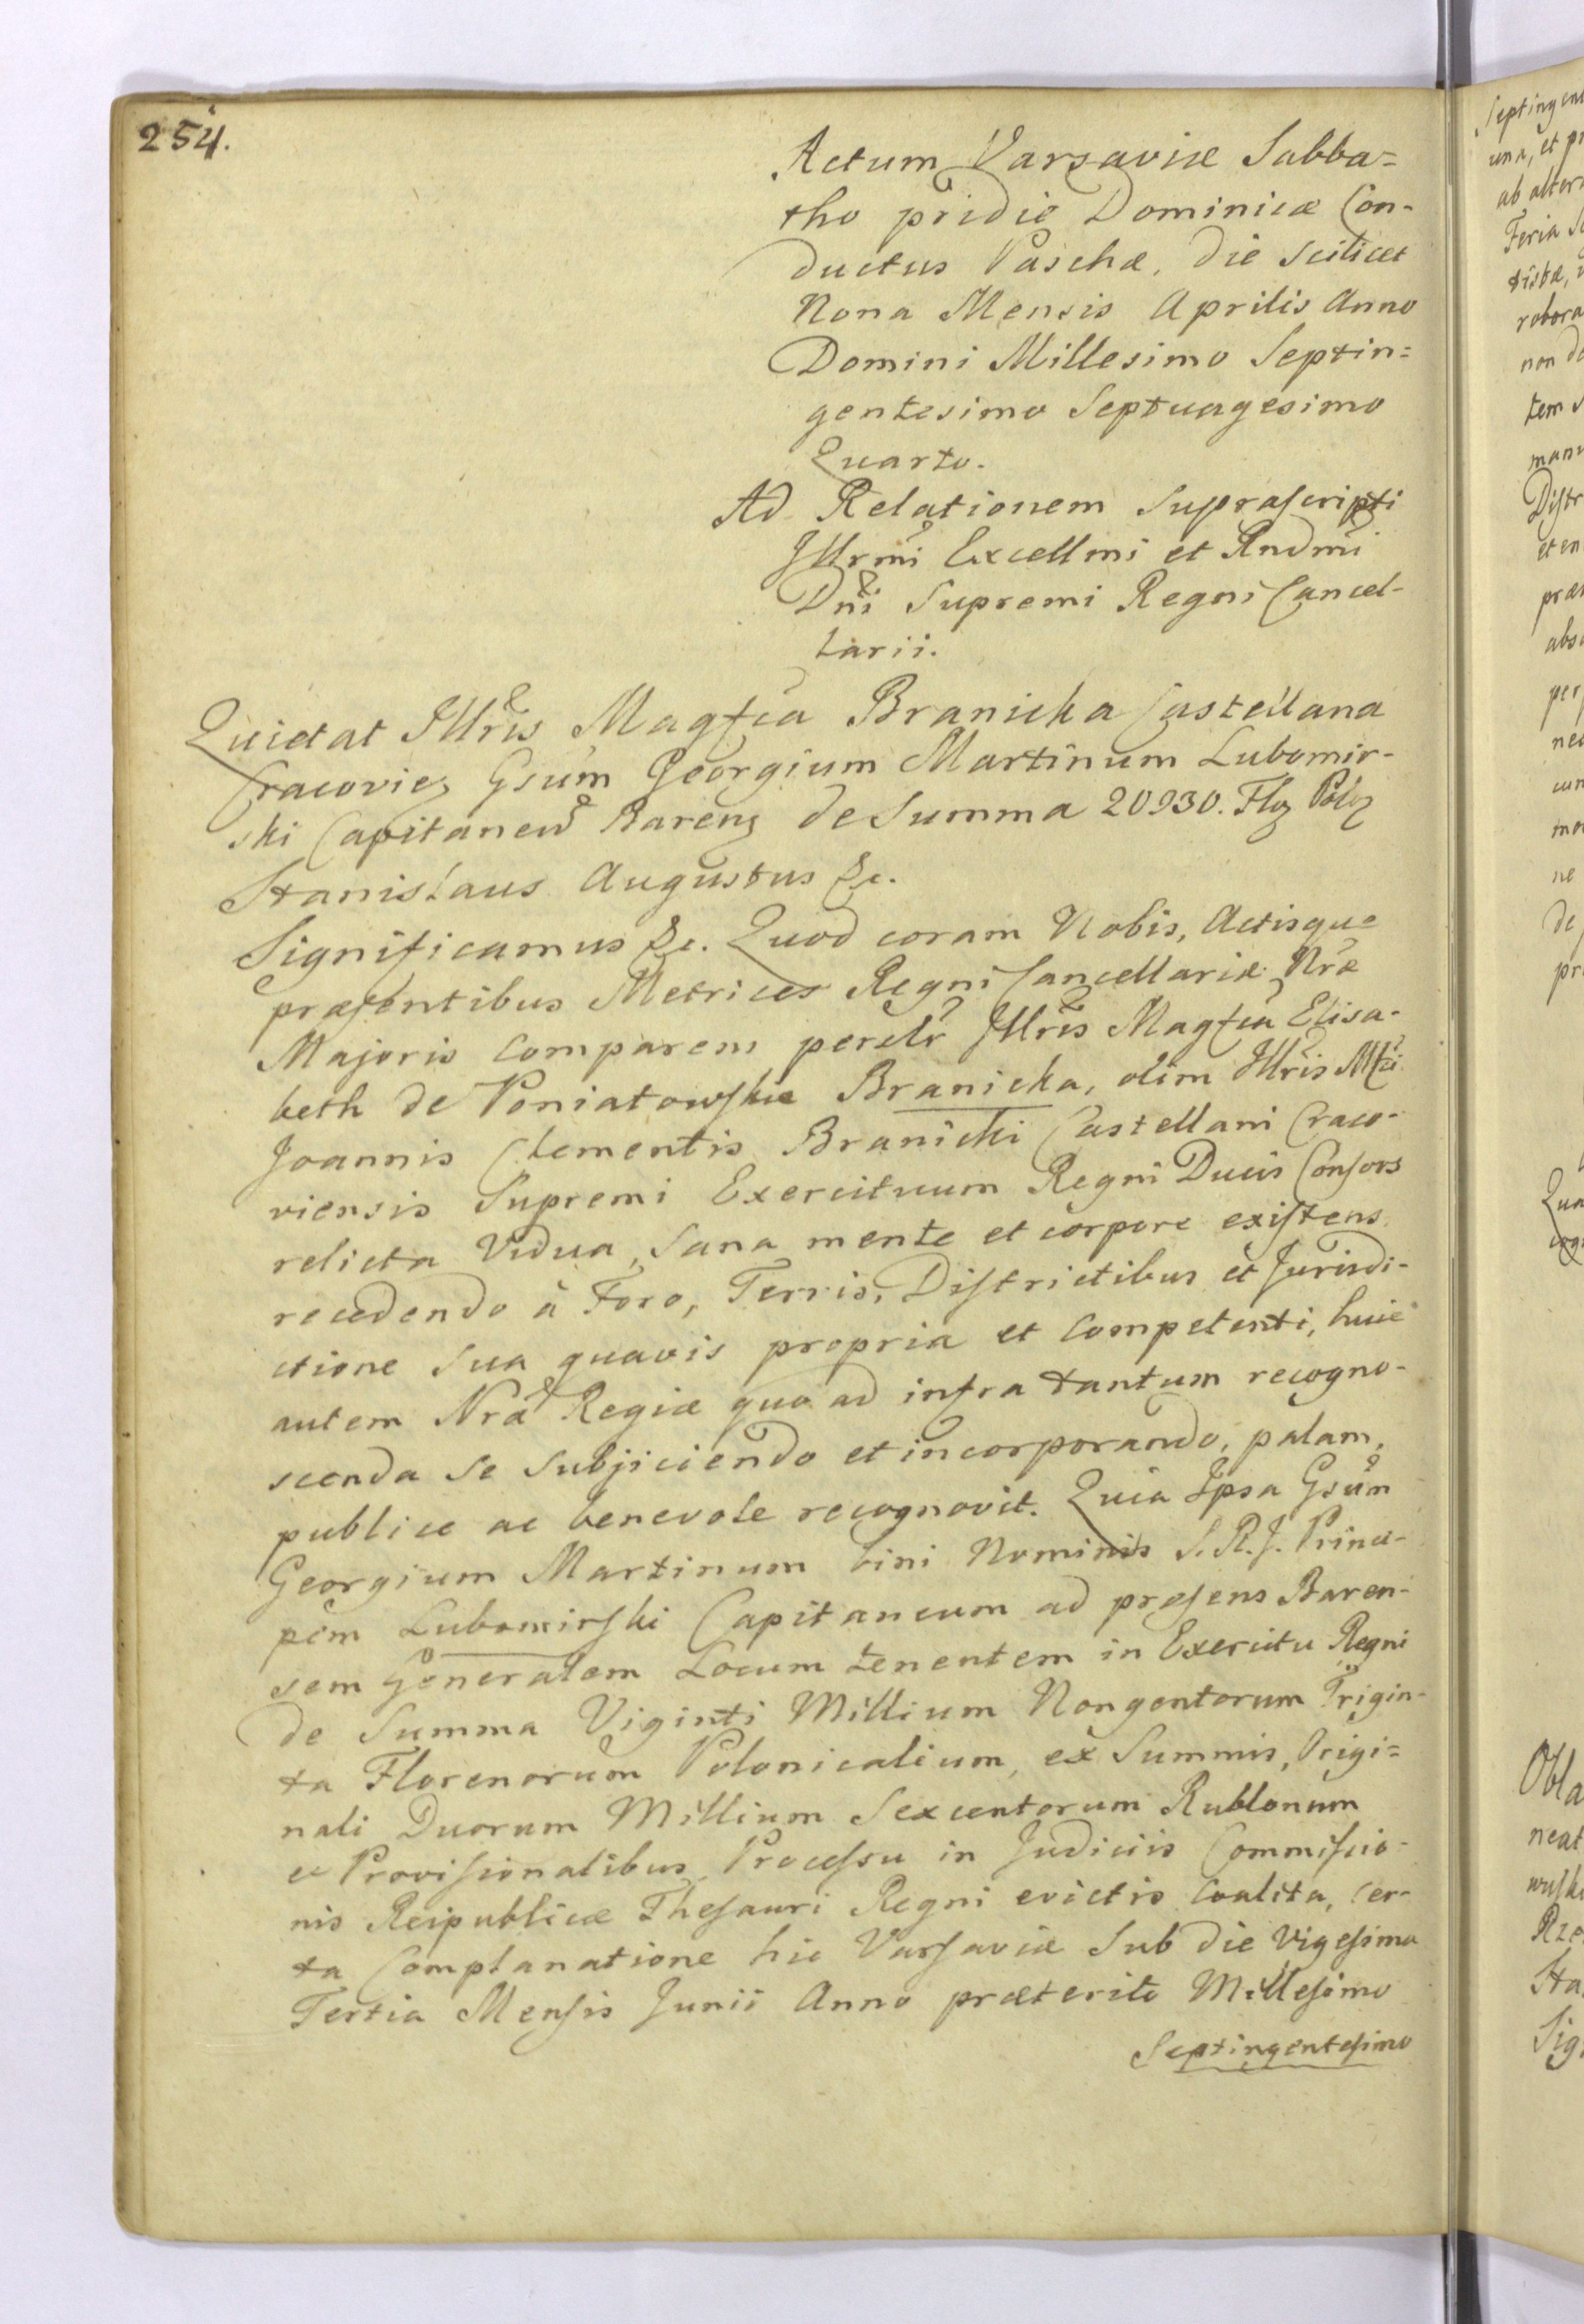 254.
Actum Varsaviæ Sabba=
tho pridie Dominicæ Con-
ductus Paschæ, die scilicet
Nona Mensis Aprilis Anno
Domini Millesimo Septin=
gentesimo Septuagesimo
Quarto.
Ad Relationem Suprascripti
Jllrmi Excellmi et Rndmi
Dni Supremi Regni Cancel-
larii.
Quietat Jllris Magfca Branicka Castellana
Cracovien Gsum Georgium Martinum Lubomir-
ski Capitaneum Baren de Summa 20930. Flor Polon
Stanislaus Augustus &c.
Significamus &c. Quod coram Nobis, Actisque
præsentibus Metrices Regni Cancellariæ Nræ
Majoris comparens personlr Jllris Magfca Elisa-
beth de Poniatowskie Branicka, olim Jllris Mfci
Joannis Clementis Branicki Castellani Craco-
viensis Supremi Exercituum Regni Ducis Consors
relicta Vidua, Sana mente et corpore existens
recedendo à Foro, Terris, Districtibus et Jurisdi-
ctione sua quavis propria et competenti, huic
autem Nræ Regiæ quo ad infra tantum recogno-
scenda se subjiciendo et incorporando, palam,
publice ac benevole recognovit. Quia Ipsa Gsum
Georgium Martinum bini Nominis S. R. J. Princi-
pem Lubomirski Capitaneum ad præsens Baren-
sem Generalem Locum tenentem in Exercitu Regni
de Summa Viginti Millium Nongentorum Trigin-
ta Florenorum Polonicalium, ex Summis, Origi=
nali Duorum Millium Sexcentorum Rublonum
et Provisionalibus Processu in Judiciis Commissio-
nis Reipublicæ Thesauri Regni evictis coalita, cer-
ta Complanatione hic Varsaviæ Sub die Vigesima
Tertia Mensis Junii Anno præterito Millesimo
Septingentesimo